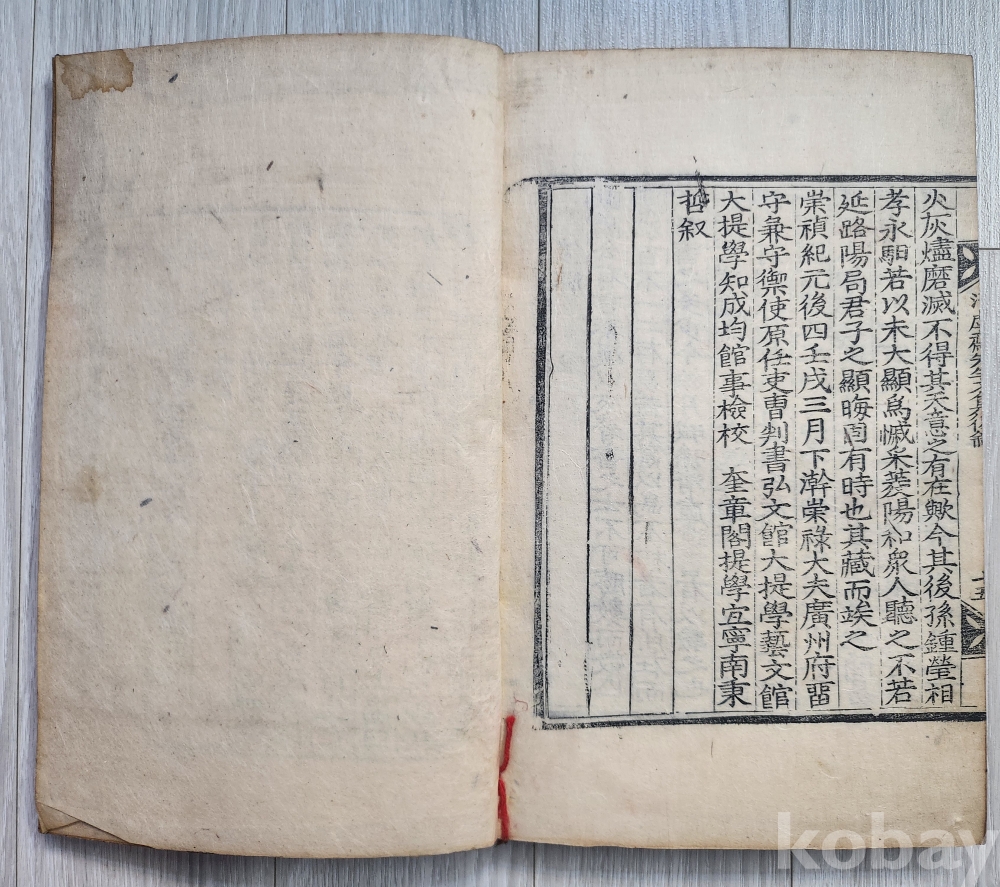 火灰燼磨滅不得其天意之有在歟今其後孫鍾瑩相
孝永馹若以未大顯爲慽采菱陽和衆人聽之不若
延路陽局君子之顯晦固有時也其藏而竢之
崇禎紀元後四壬戌三月下澣崇祿大夫廣州府畱
守兼守禦使原任吏曹判書弘文館大提學藝文館
大提學知成均館事檢校 奎章閣提學宜寧南秉
哲叙
kobay